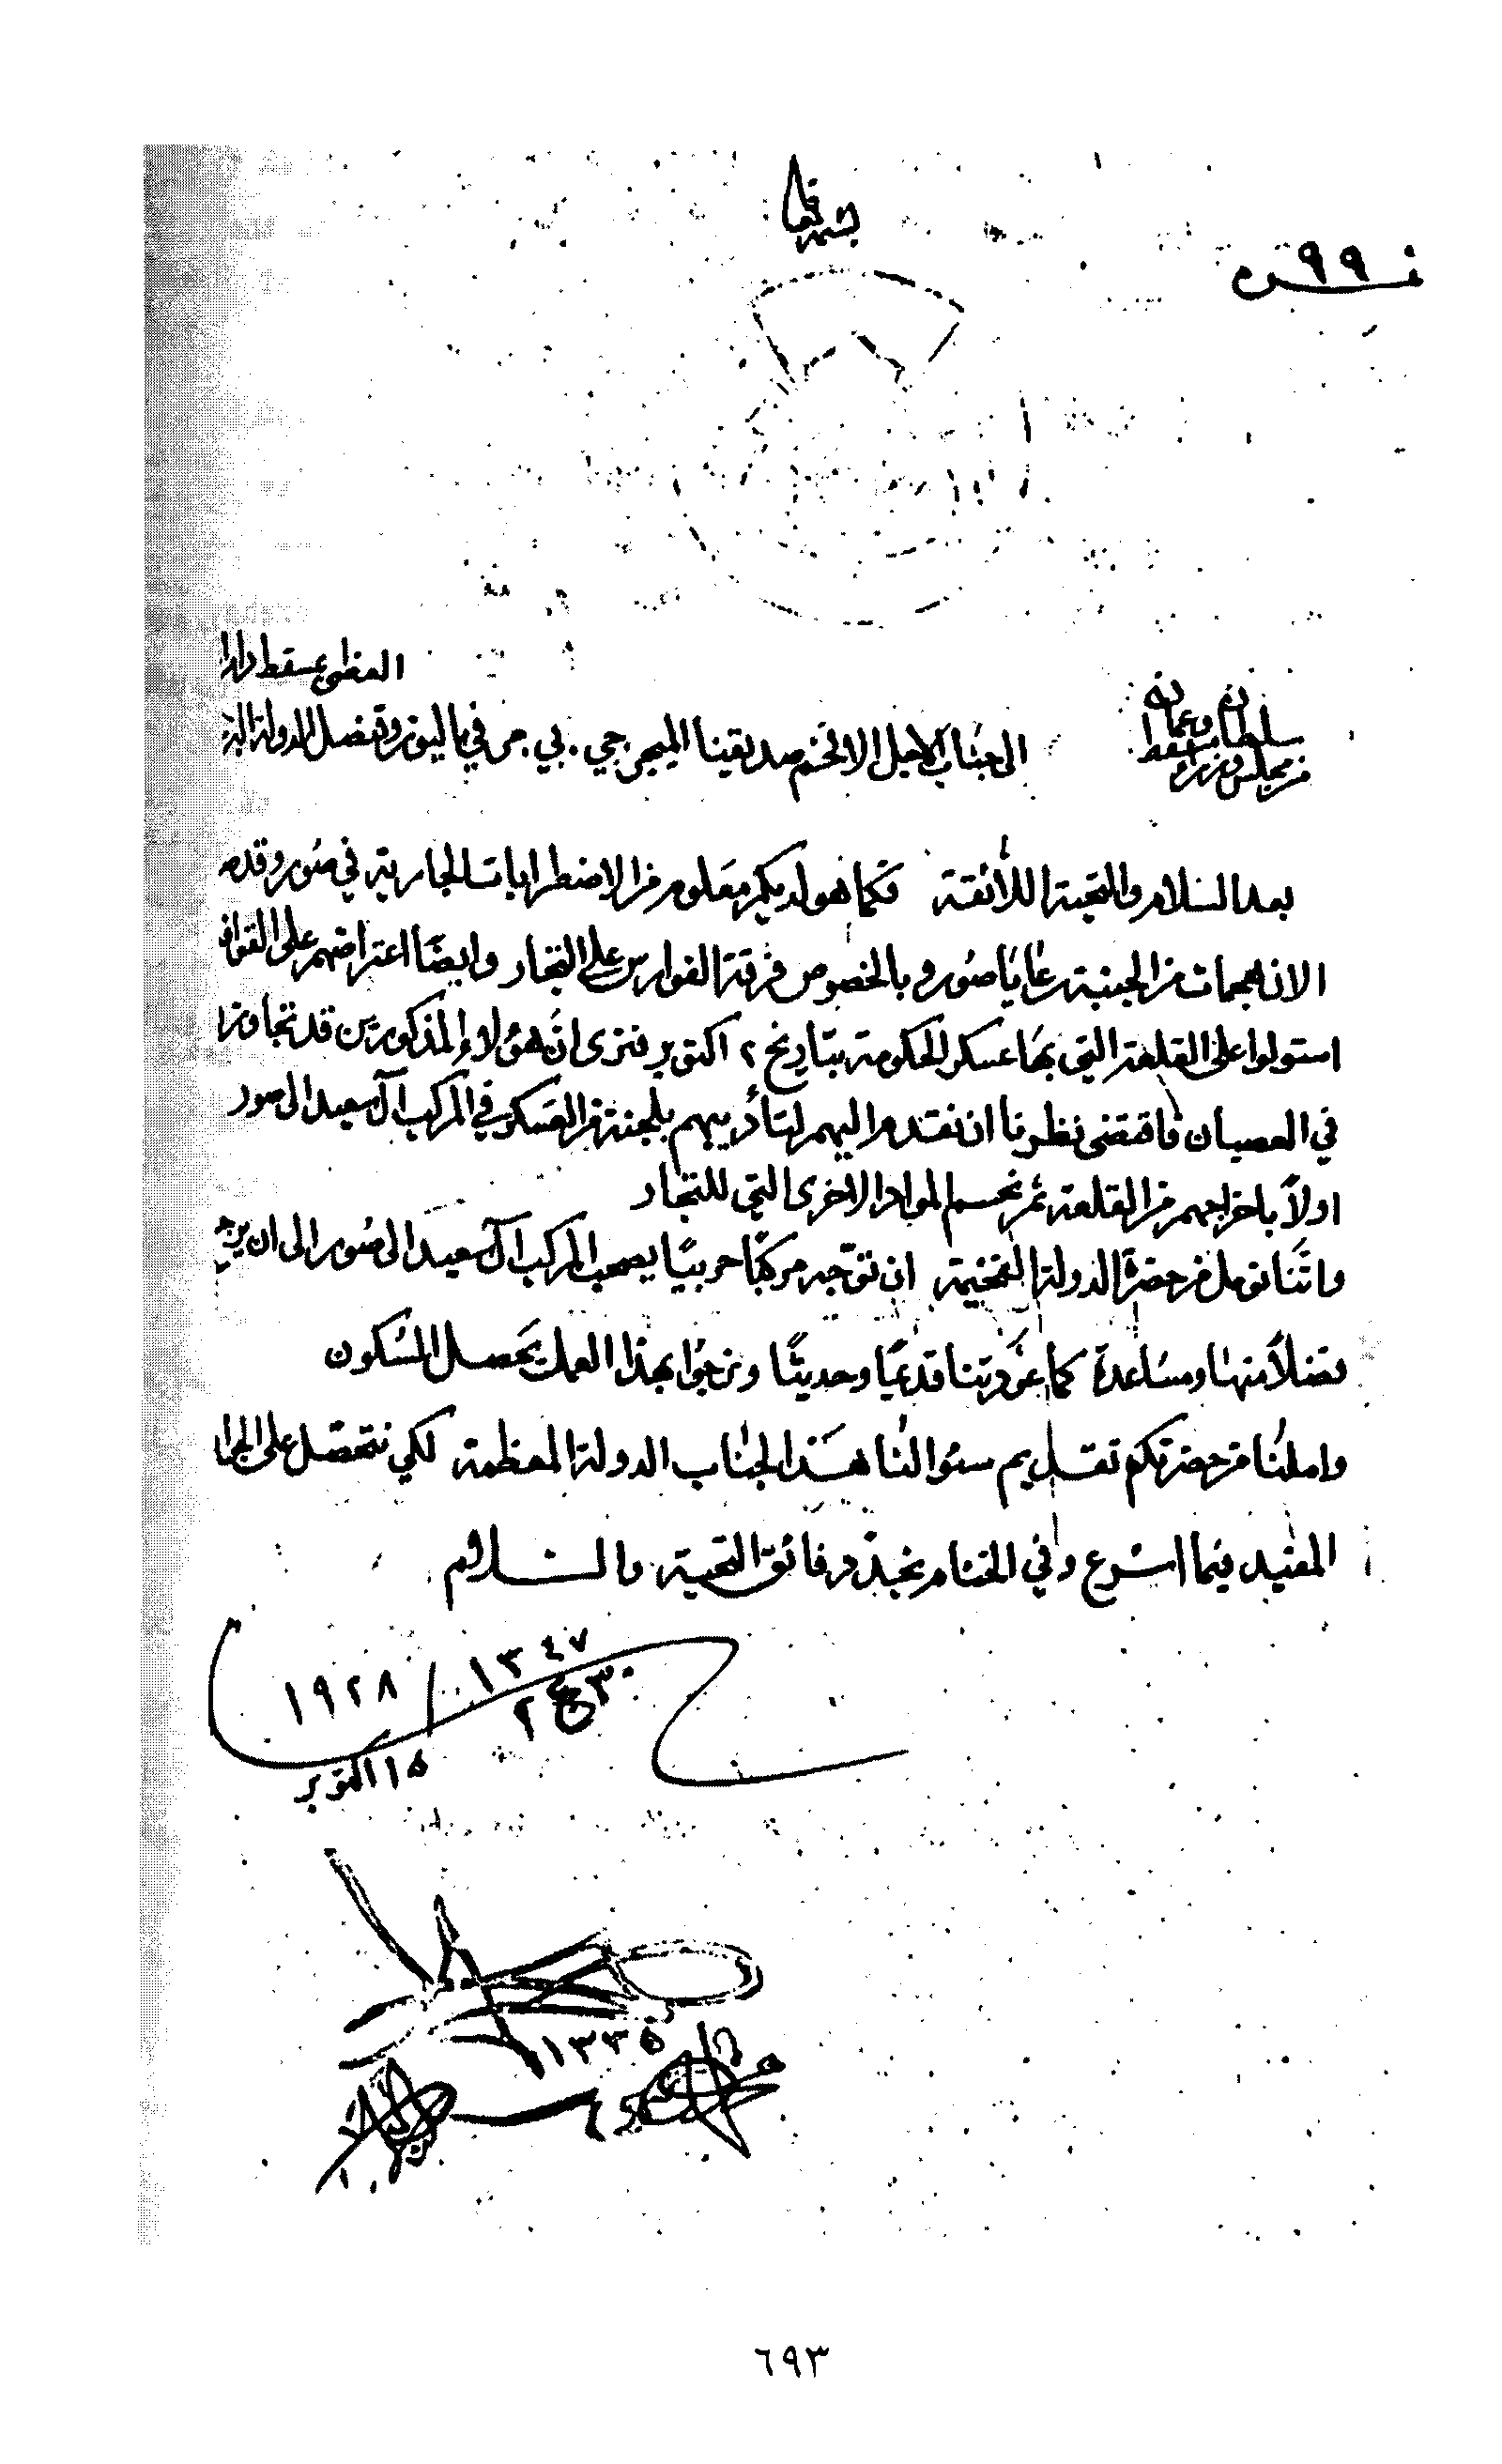 بسمه تعالى
نمرة ٩٩
العظمى بمسقط دام
من مجلس وزراء سلطان مسقط وعمان
الى جناب الاجل الافخم صديقنا الميجر جي . بي . مرفي باليوز وقنصل الدولة
بعد السلام والتحية اللائقة فكما هو لديكم معلوم من الاضطرابات الجارية في صور وقد
الان هجمات من الجنبة رعايا صور وبالخصوص فرقة الفوارس على التجار وايضًا اعتراضهم على القوافل
استولوا على القلعة التي بها عسكر الحكومة بتاريخ ٢ اكتوبر فنرى انّ هؤلاء المذكورين قد تجاوزا
في العصيان فاقتضى نظرنا ان نقدم اليهم لتأديبهم بلجنة من العسكر في المركب آل سعيد الى صور
اولاً باخراجهم من القلعة ثم نحسم المواد الاخرى التي للتجار
واننا نؤمل من حضرة الدولة الفخيمة ان توّجه مركبًا حربيًا يصحب المركب آل سعيد الى صور الى ان يرجع
تفضلاً منها ومساعدة كما عوّدتنا قديمًا وحديثًا ونرجوا بهذا العمل يحصل السكون
واملنا من حضرتكم تقديم سئوالنا هذا لجناب الدولة المعظمة لكي نتحصل على الجواب
المفيد فيما اسرع وفي الختام نجدّد فائق التحية والسلام
١٣٤٧ / ١٩٢٨
٣٠ ع ٢
١٥ اكتوبر
١٣٣٥
٦٩٣